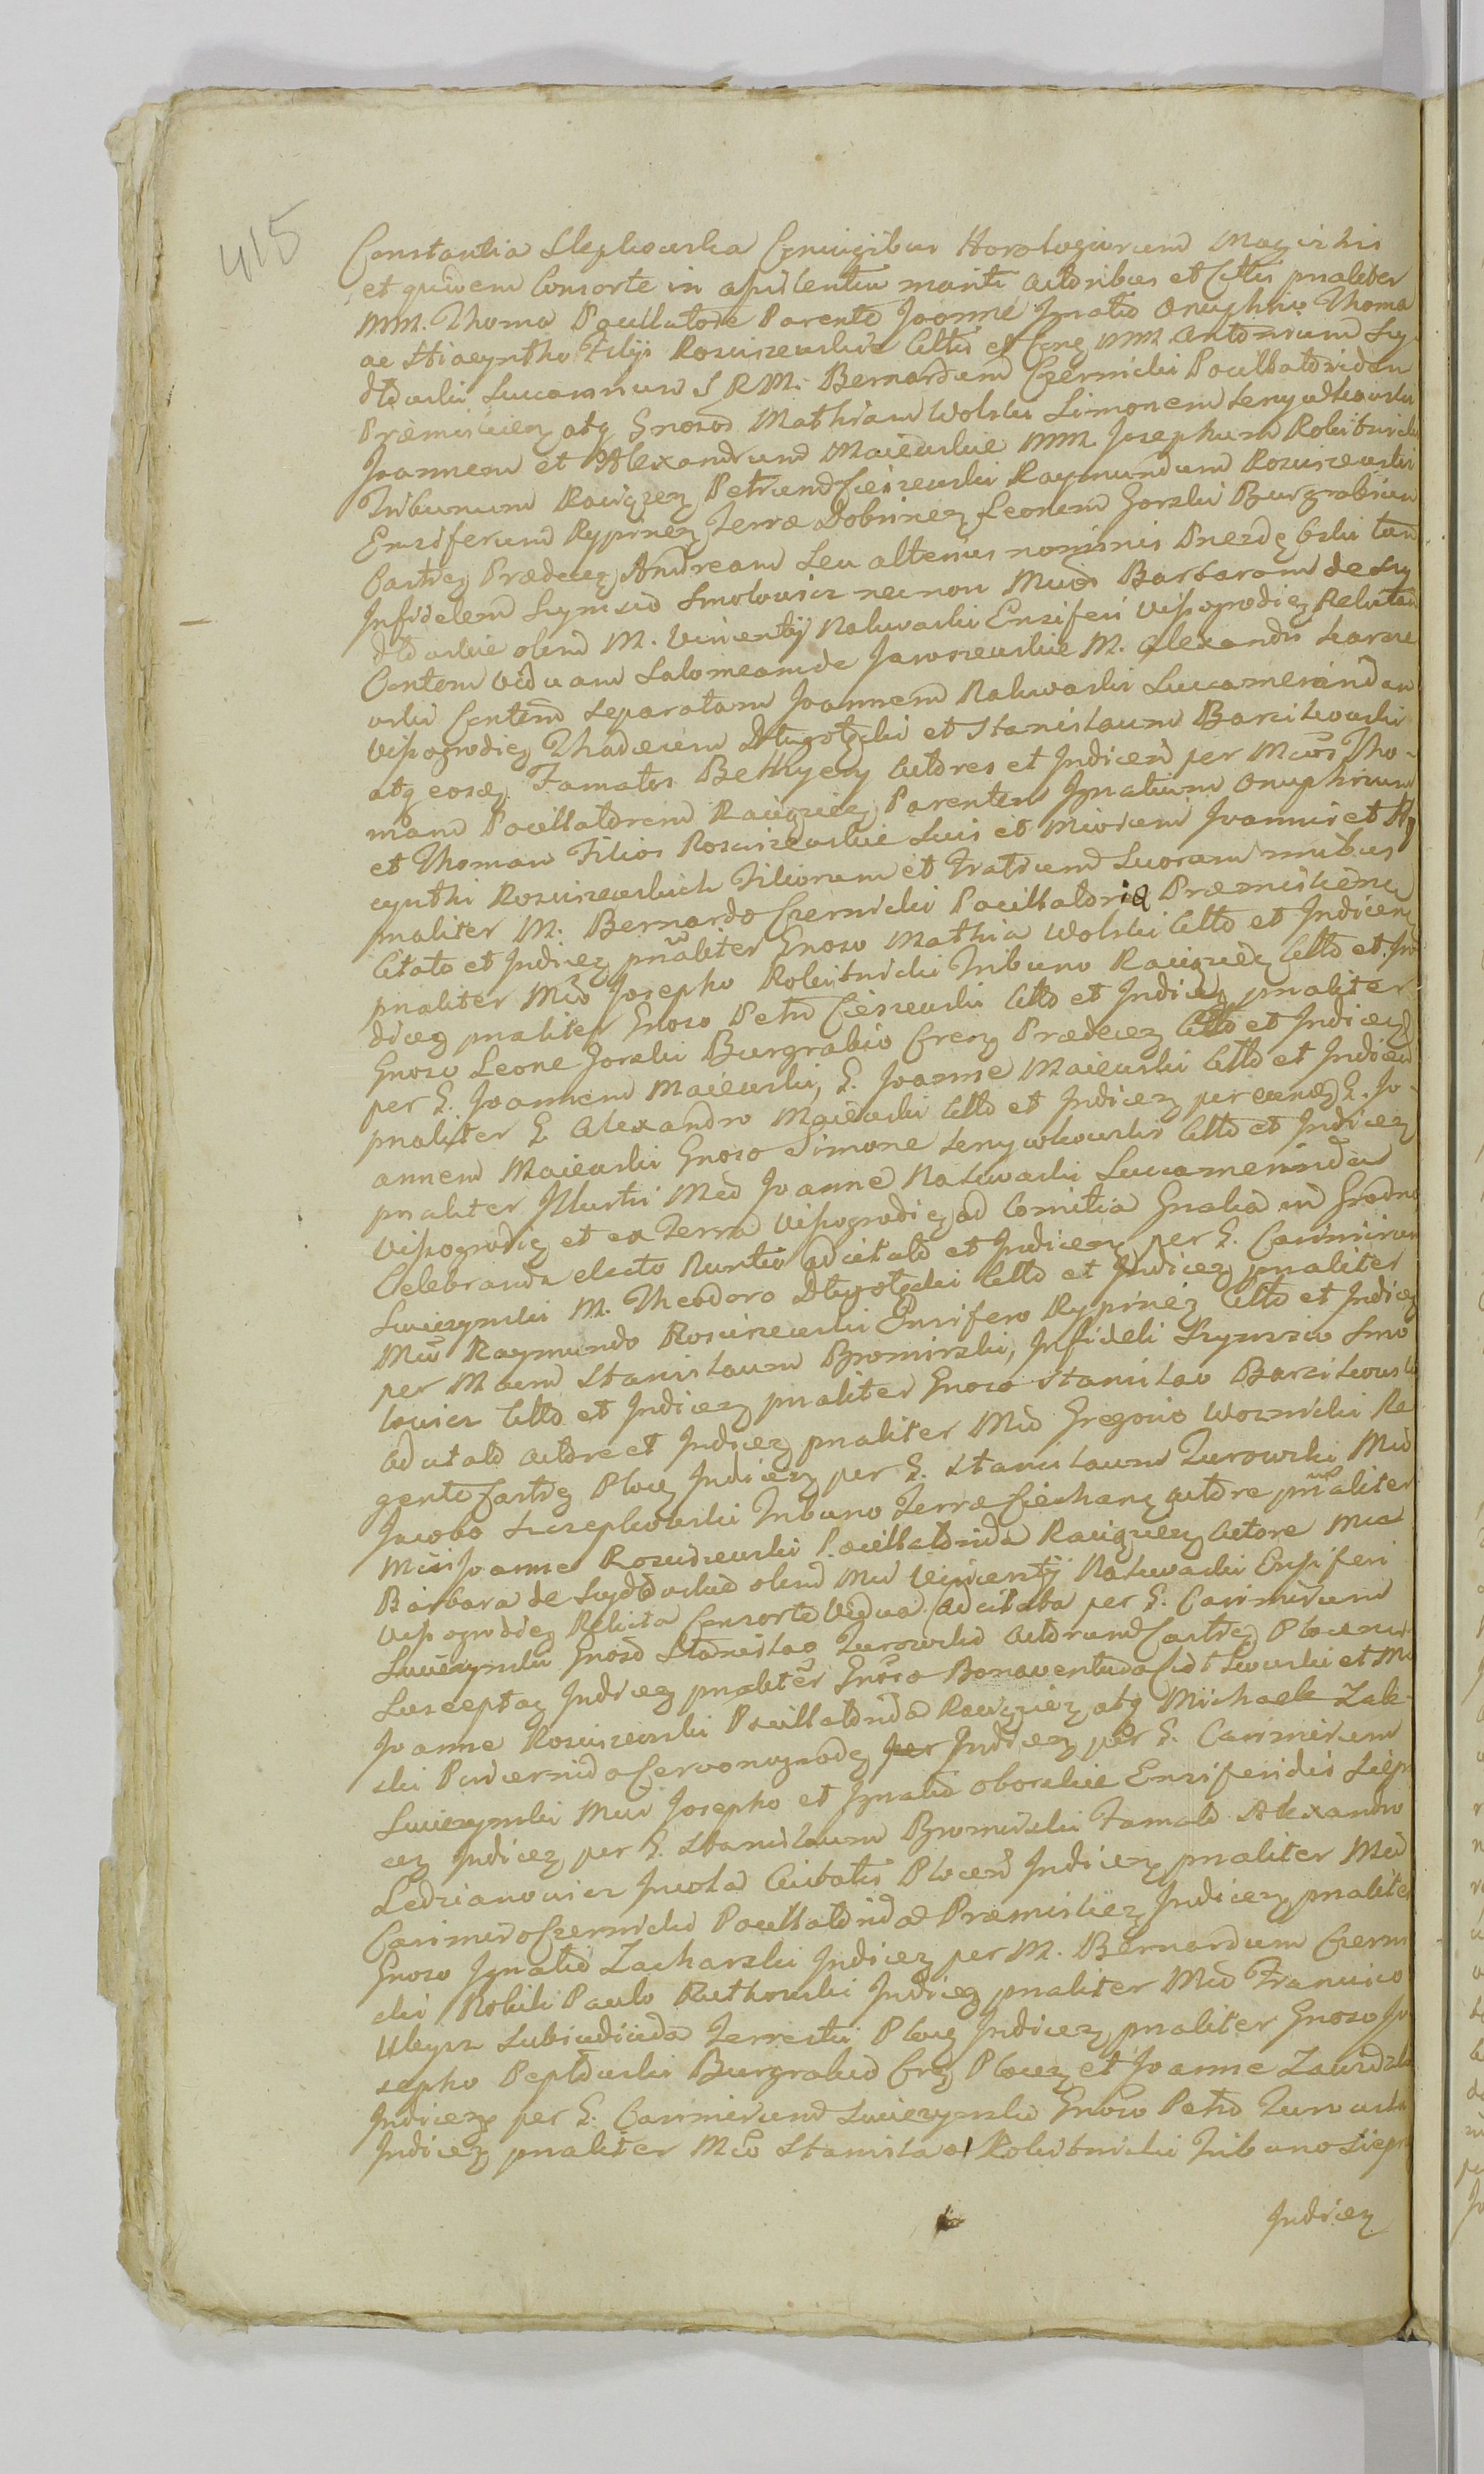 415
Constantia Slepkowska Conjugibus Horologiorum Magistris
et quidem Consorte in assistentia mariti Actoribus et Cttis pnaliter
MM. Thoma Pocillatore Parente Joanne Ignatio Onuphrio Thoma
ac Hiacyntho Filijs Rosciszewskie Cttis et Cong MM. Antonium Sy-
dłowski Succamerar S R M. Bernardum Czernicki Pocillatoridam
Præmislien atq Gnosos Mathiam Wolski Simonem
Joannem et Alexandrum Maiewskie MM. Josephum Rokitnicki
Tribunum Raciązen Petrum Cieszewski Raymundum Rosciszewski
Ensiferum Rypinen Terræ Dobrinen Leonem Gorski Burgrabium
Castren Prædecen Andream seu alterius nominis tum
Infidelem Szymcio Smolowicz nec non Mcas Barbaram de Sy
dłowskie olim M. Vincentij Nakwaski Ensiferi Vissogrodien Relictam
Contem Viduam Salomeam de Jaroszewskie M. Alexandri
wski Contem separatam Joannem Nakwaski Succameridam
Vissogrodien Thadeum Długołęcki et Stanislaum Barcikowski
atq eosq Famatos Actores et Indicen per Mcos Tho-
mam Pocillatorem Raciązien Parentem Ignatium Onuphrium
et Thomam Filios Rosciszewskie suis et Mcorum Joannis et Hy
cynthi Rosciszewskich Filiorum et Fratrum suorum nnibus
pnaliter M. Bernardo Czernicki Pocillatorida Præmislien
Citato et Indicen pnaliter Gnoso Mathia Wolski Ctto et Indicen
pnaliter Mco Josepho Rokitnicki Tribuno Raciązen Ctto et In
dicen pnaliter Gnoso Petro Cieszewski Ctto et Indicen pnaliter
Gnoso Leone Gorski Burgrabio Cren Prædecen Ctto et Indicen
per G. Joannem Maiewski, G. Joanne Maiewski Ctto et Indicen
pnaliter G. Alexandro Maiewski Ctto et Indicen per eundem G. Jo-
annem Maiewski Gnoso Simone Ctto et Indicen
pnaliter Illustri Mco Joanne Nakwaski Succamerida
Vissogrodien et ex Terra Vissogrodien ad Comitia Gnalia in Grodno
Celebranda electo Nuntio adcitato et Indicen per G. Casimirum
Swiezynski M. Theodoro Długołęcki Ctto et Indicen pnaliter
Mco Raymundo Rosciszewski Ensifero Rypinen Ctto et Indicen
per Mcum Stanislaum Bromirski, Infideli Szymcio Smo
lowicz Ctto et Indicen pnaliter Gnoso Stanislao Barcikowski
adcitato Actore et Indicen pnaliter Mco Gregorio Woznicki Re
gente Castren Plocen Indicen per G. Stanislaum Zurowski Mco
Jacobo Szczepkowski Tribuno Terræ Ciechanen Actore pnaliter
Mco Joanne Rosciszewski Pocillatorida Raciązien Actore Mca
Barbara de Sydłowskie olim Mci Vincentij Nakwaski Ensiferi
Vissogrodien Relicta Consorte Vidua Adcitata per G. Casimirum
Swiezynski Gnoso Stanislao Zurowski Actorum Castren Plocen
Susceptae Indicen pnaliter Gnoso Bonaventura et M
Joanne Rosciszewski Pocillatorida Raciązien atq Michaele Zak-
ski Pincernida Czerwonogroden per Indicen per G. Casimirum
Swiezynski Mcis Josepho et Ignatio Oborskie Ensiferidis Sierp
cen Indicen per G. Stanislaum Bromirski Famato Alexandro
Ledzianowicz Incola Civitatis Plocen Indicen pnaliter Mco
Casimiro Czernicki Pocillatorida Præmislien Indicen pnaliter
Gnoso Ignatio Zacharski Indicen per M. Bernardum Czerni
cki Nobili Paulo Rutkowski Indicen pnaliter Mco Francisco
Subiudicida Terrestri Plocen Indicen pnaliter Gnoso Jo
sepho Peplowski Burgrabio Cren Plocen et Joanne Zawidzki
Indicen per G. Casimirum Swiezynski Gnoso Petro Zurowski
Indicen pnaliter Mco Stanislao Rokitnicki Tribuno Sierpc
Indicen